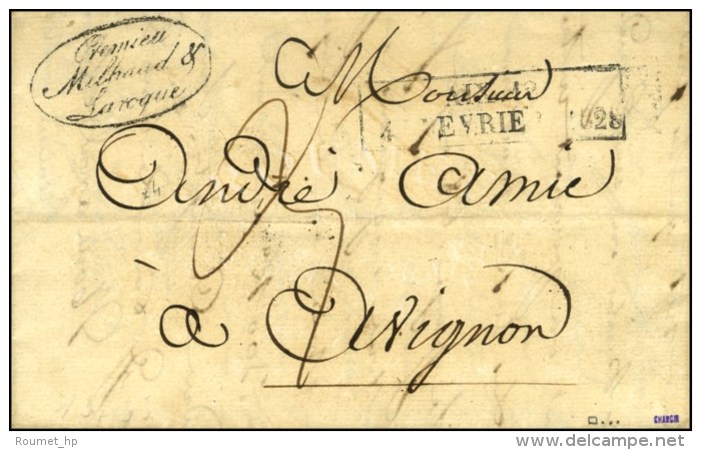 Cremieu
Milhaud &
Laroque
Monsieur
4 EVRIE 1828
André Amic
à Avignon
CHANCIR
Roumet_hp
delcampe.net